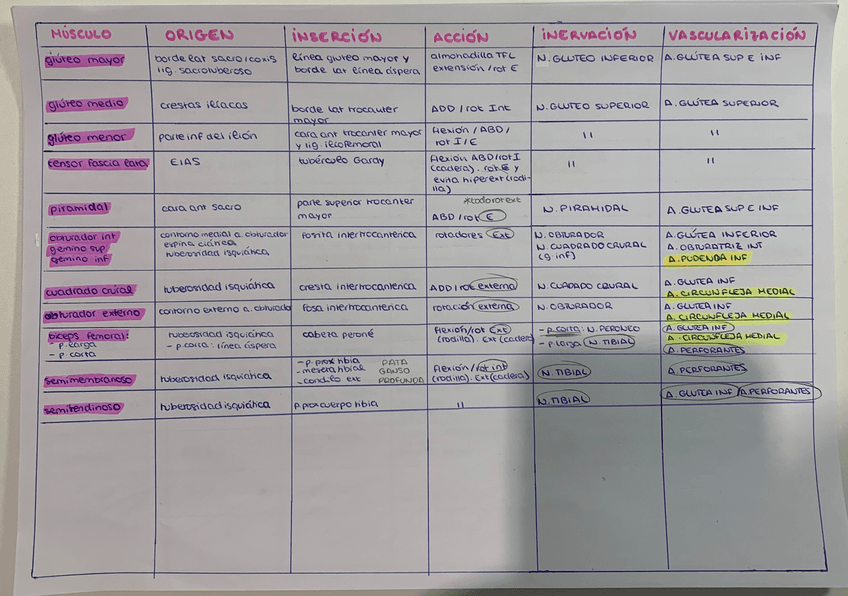 MÚSCULO ORIGEN INSERCIÓN ACCIÓN INERVACIÓN VASCULARIZACIÓN
glúteo mayor
borde lat sacro/coxis
lig. sacrotuberoso
línea glúteo mayor y
borde lat línea áspera
almohadilla TFL
extensión/rot E
N. GLUTEO INFERIOR
A. GLÚTEA SUP E INF
glúteo medio
crestas ilíacas
borde lat trocanter
mayor
ADD/rot Int
N. GLUTEO SUPERIOR
A. GLÚTEA SUPERIOR
glúteo menor
parte inf del ilión
cara ant trocanter mayor
y lig. iliofemoral
flexión/ABD/
rot I/E
"
"
tensor fascia lata
EIAS
tubérculo Gardy
flexión ABD/rot I
(cadera). rot E y
evita hiperext (rodi-
lla)
"
"
piramidal
cara ant sacro
parte superior trocanter
mayor
*todo rot ext
ABD/rot E
N. PIRAMIDAL
A. GLUTEA SUP E INF
obturador int
gemino sup
gemino inf
contorno medial a. obturador
espina ciática
tuberosidad isquiática
fosita intertrocantérica
rotadores Ext
N. OBTURADOR
N. CUADRADO CRURAL
(g. inf)
A. GLÚTEA INFERIOR
A. OBTURATRIZ INT
A. PUDENDA INF
cuadrado crural
tuberosidad isquiática
cresta intertrocanterica
ADD/rot externa
N. CUADADO CRURAL
A. GLUTEA INF
A. CIRCUNFLEJA MEDIAL
obturador externo
contorno externo a. obturador
fosa intertrocantérica
rotación externa
N. OBTURADOR
A. GLUTEA INF
A. CIRCUNFLEJA MEDIAL
bíceps femoral:
- p. larga
- p. corta
tuberosidad isquiática
- p. corta: línea áspera
cabeza peroné
flexión/rot ext
(rodilla). Ext (cadera)
- p. corta: N. PERONEO
- p. larga N. TIBIAL
A. GLUTEA INF
A. CIRCUNFLEJA MEDIAL
A. PERFORANTES
semimembranoso
tuberosidad isquiática
- p. prox tibia
- meseta tibial
- condilo ext
PATA
GANSO
PROFUNDA
flexión/rot int
(rodilla). Ext (cadera)
N. TIBIAL
A. PERFORANTES
semitendinoso
tuberosidad isquiática
p prox cuerpo tibia
"
N. TIBIAL
A. GLUTEA INF A. PERFORANTES